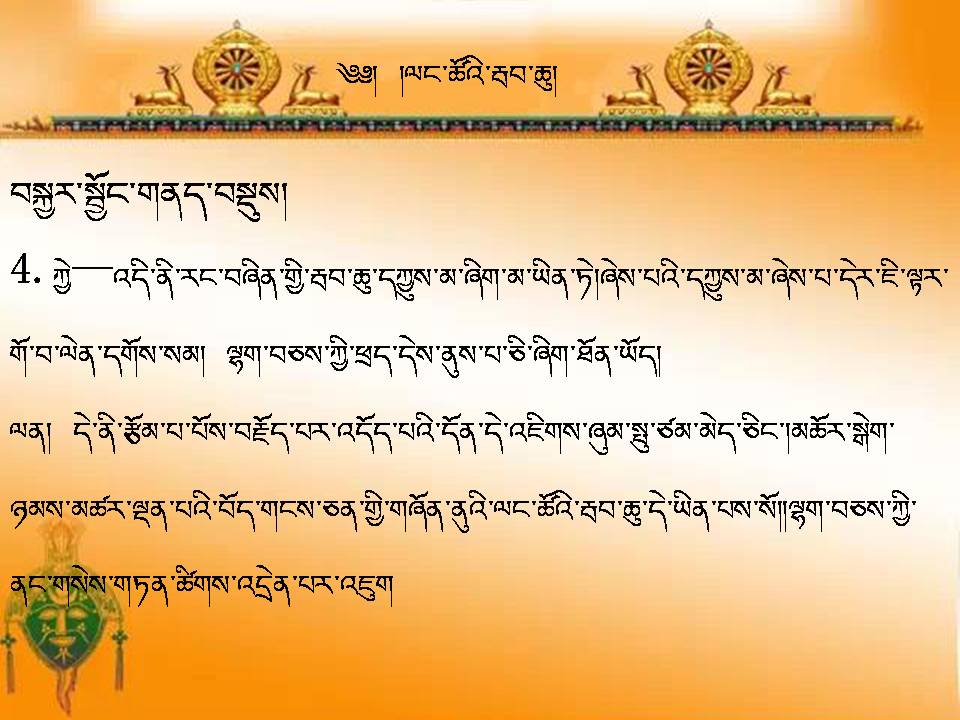 ༄༅། །ལང་ཚོའི་རྦབ་ཆུ།
བསྐྱར་སྦྱོང་གནད་བསྡུས།
4. ཀྱེ—འདི་ནི་རང་བཞིན་གྱི་རྦབ་ཆུ་དཀྱུས་མ་ཞིག་མ་ཡིན་ཏེ།ཞེས་པའི་དཀྱུས་མ་ཞེས་པ་དེར་ཇི་ལྟར་
གོ་བ་ལེན་དགོས་སམ། ལྷག་བཅས་ཀྱི་ཕྲད་དེས་ནུས་པ་ཅི་ཞིག་ཐོན་ཡོད།
ལན། དེ་ནི་རྩོམ་པ་པོས་བརྗོད་པར་འདོད་པའི་དོན་དེ་འཇིགས་ཞུམ་སྤུ་ཙམ་མེད་ཅིང་།མཚོར་སྒེག་
ཉམས་མཚར་ལྡན་པའི་བོད་གངས་ཅན་གྱི་གཞོན་ནུའི་ལང་ཚོའི་རྦབ་ཆུ་དེ་ཡིན་པས་སོ།།ལྷག་བཅས་ཀྱི་
ནང་གསེས་གཏན་ཚིགས་འདྲེན་པར་འཇུག